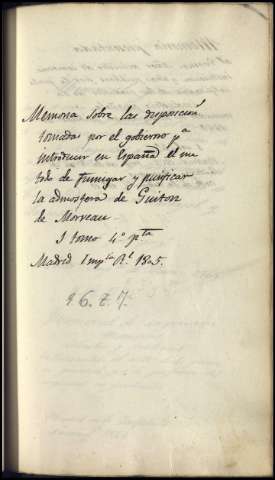 Memoria sobre las disposicion.
tomadas por el gobierno pª
introducir en España el me
todo de fumigar y purificar
la admosfera de Guiton
de Morveau.
1 tomo 4º ptª
Madrid Impta Rl. 1805.
9. 6. Z. 7.